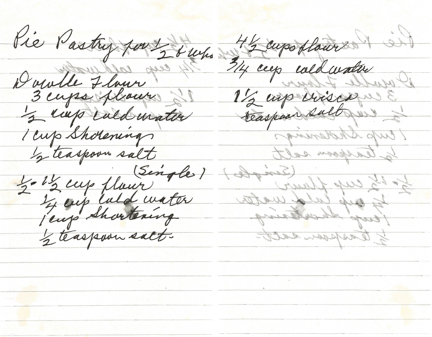 Pie Pastry for 1/2 6 cups
Double Flour
3 cups flour
1/2 cup cold water
1 cup Shortening
1/2 teaspoon salt
(Single)
1/2 - 1 1/2 cup flour
1/4 cup cold water
1 cup Shortening
1/2 teaspoon salt-
4 1/2 cups flour
3/4 cup cold water
1 1/2 cup crisco
teaspoon salt